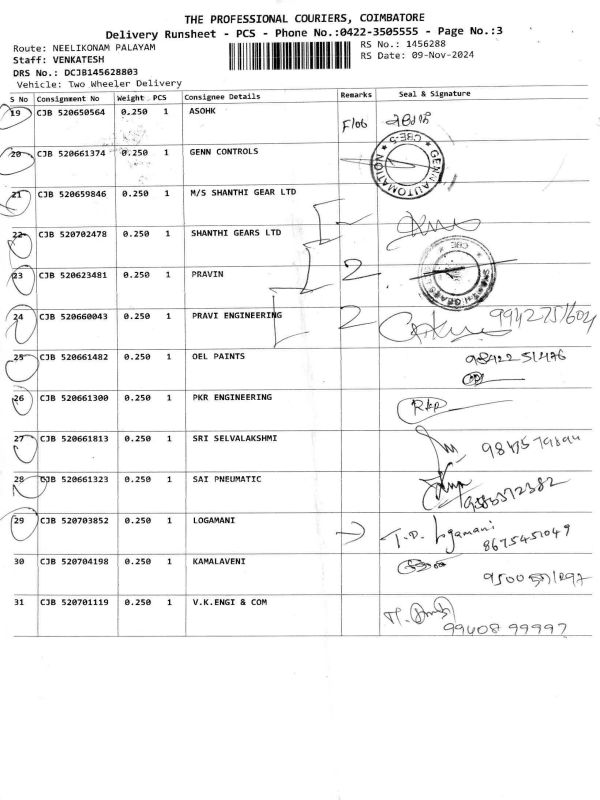 THE PROFESSIONAL COURIERS, COIMBATORE
Delivery Runsheet - PCS - Phone No.:0422-3505555 - Page No.:3
Route: NEELIKONAM PALAYAM
RS No.: 1456288
Staff: VENKATESH
RS Date: 09-Nov-2024
DRS No.: DCJB145628803
Vehicle: Two Wheeler Delivery
S No Consignment No Weight PCS Consignee Details Remarks Seal & Signature
19 CJB 520650564 0.250 1 ASOHK
20 CJB 520661374 0.250 1 GENN CONTROLS
GENN AUTOMATION CBE-5
21 CJB 520659846 0.250 1 M/S SHANTHI GEAR LTD
22 CJB 520702478 0.250 1 SHANTHI GEARS LTD
23 CJB 520623481 0.250 1 PRAVIN 2
24 CJB 520660043 0.250 1 PRAVI ENGINEERING 2
25 CJB 520661482 0.250 1 OEL PAINTS
26 CJB 520661300 0.250 1 PKR ENGINEERING
27 CJB 520661813 0.250 1 SRI SELVALAKSHMI
28 CJB 520661323 0.250 1 SAI PNEUMATIC
29 CJB 520703852 0.250 1 LOGAMANI T.D. Logamani
8675451049
30 CJB 520704198 0.250 1 KAMALAVENI
31 CJB 520701119 0.250 1 V.K.ENGI & COM
99408 99997